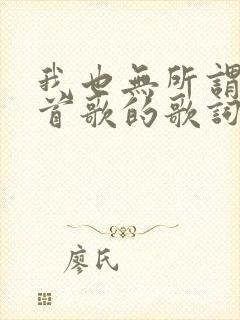 我也無所謂
首歌的歌詞
廖氏